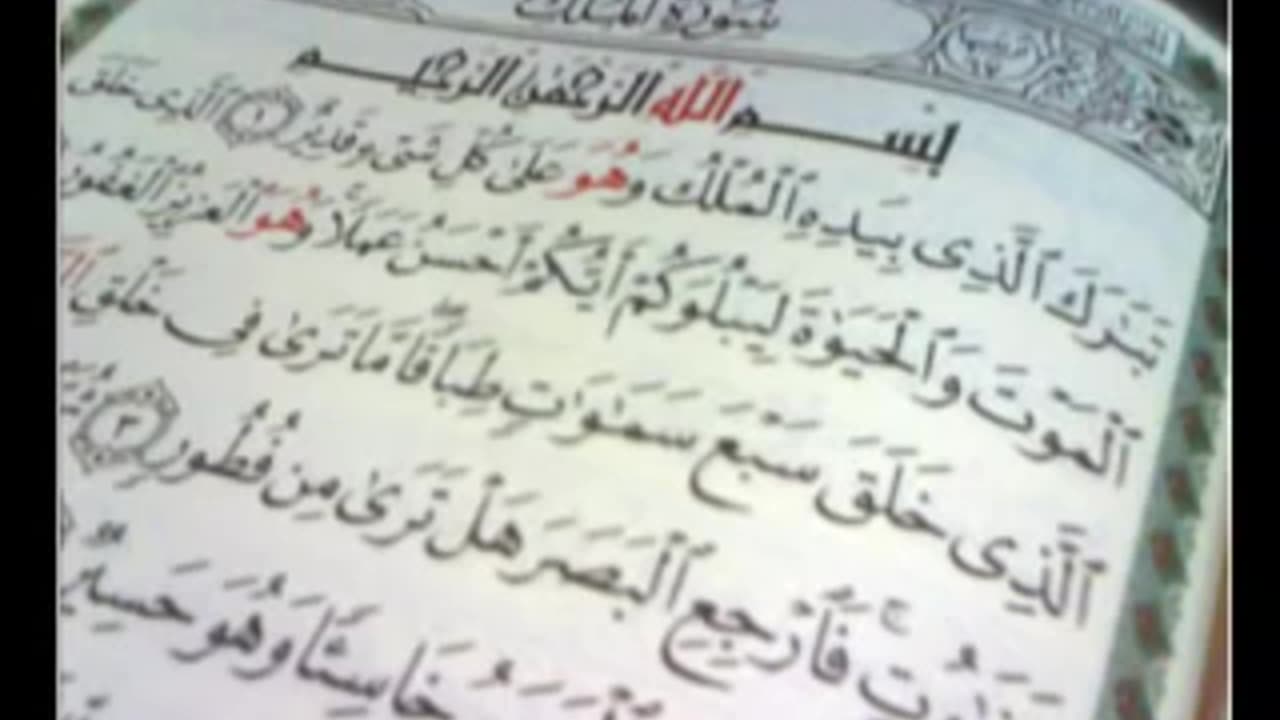 سورة الملك
بِسْمِ اللَّهِ الرَّحْمَٰنِ الرَّحِيمِ
تَبَٰرَكَ ٱلَّذِى بِيَدِهِ ٱلْمُلْكُ وَهُوَ عَلَىٰ كُلِّ شَىْءٍ قَدِيرٌ ١ ٱلَّذِى خَلَقَ
ٱلْمَوْتَ وَٱلْحَيَوٰةَ لِيَبْلُوَكُمْ أَيُّكُمْ أَحْسَنُ عَمَلًا وَهُوَ ٱلْعَزِيزُ ٱلْغَفُورُ
ٱلَّذِى خَلَقَ سَبْعَ سَمَٰوَٰتٍ طِبَاقًا مَّا تَرَىٰ فِى خَلْقِ
فَٱرْجِعِ ٱلْبَصَرَ هَلْ تَرَىٰ مِن فُطُورٍ ٣
خَاسِئًا وَهُوَ حَسِيرٌ